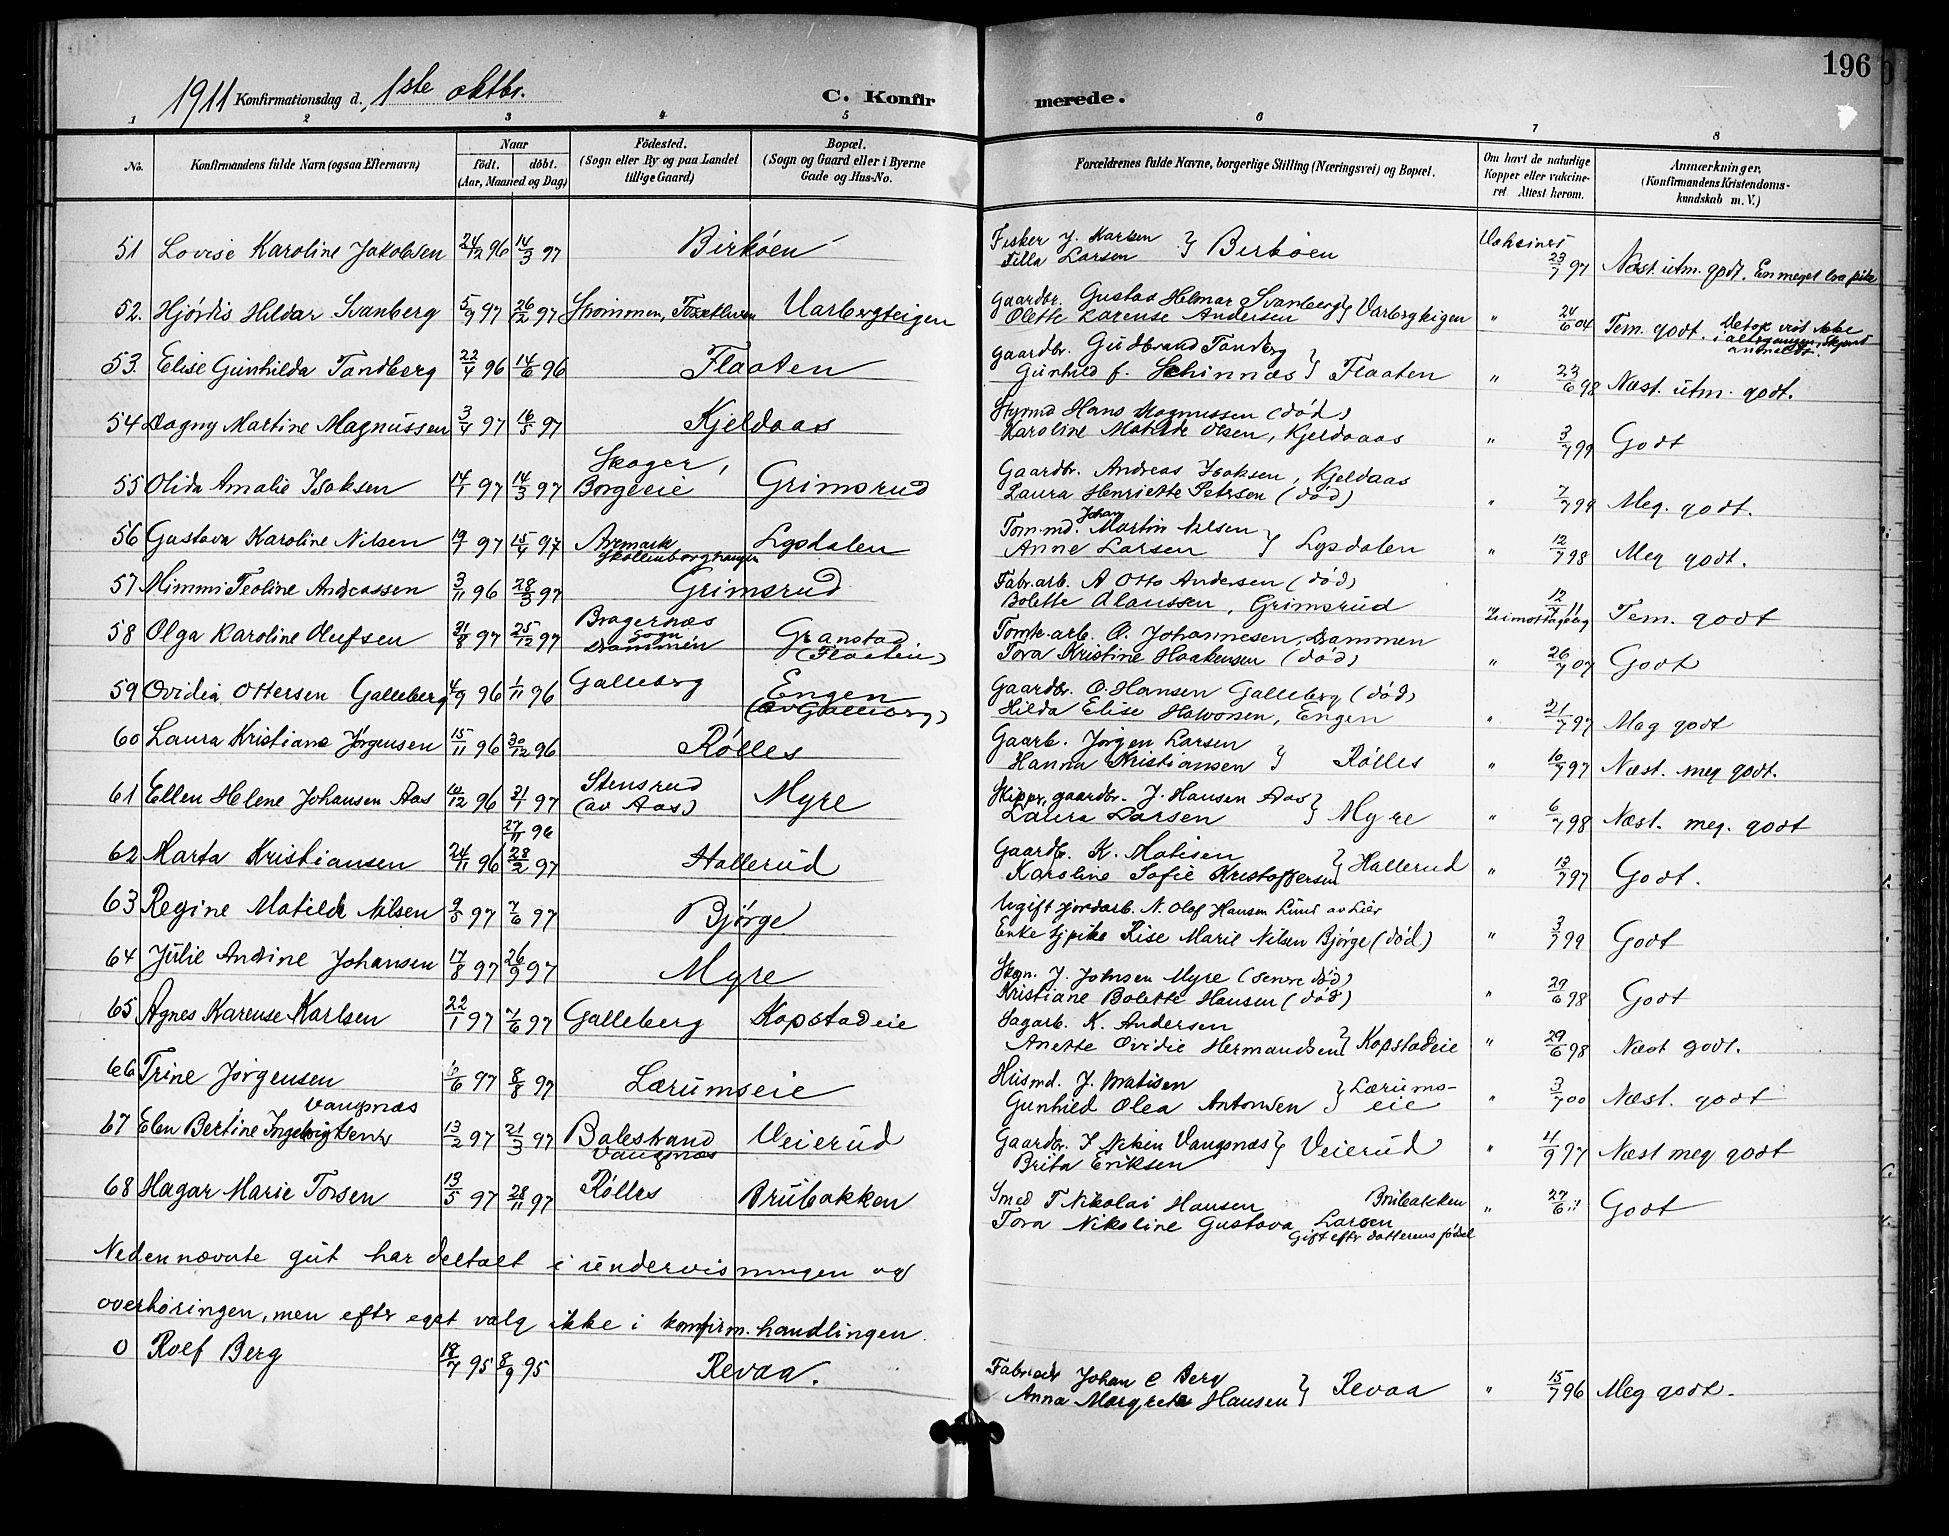 196
1911 Konfirmationsdag d. 1ste oktbr. C. Konfirmerede.
1 2 3 4 5 6 7 8
No. Konfirmandens fulde Navn (ogsaa Efternavn) Naar födt. döbt. (Aar, Maaned og Dag) Födested. (Sogn eller By og paa Landet tillige Gaard) Bopæl. (Sogn og Gaard eller i Byerne Gade og Hus-No. Forældrenes fulde Navne, borgerlige Stilling (Næringsvei) og Bopæl. Om havt de naturlige Kopper eller vakcineret. Attest herom. Anmærkninger. (Konfirmandens Kristendomskundskab m. V.)
51 Lovise Karoline Jakobsen 24/12 96 14/3 97 Birköen Fisker J. Karlsen Larsen } Birköen 23/7 97 Næst. utm. godt. En meget bra pike
52. Hjördis Hildar Svanberg 5/9 97 26/12 97 Strömmen, Varbergteigen Gaardbr. Gustav Helmar Svanberg Olette Karense Andersen } Varbergteigen " 24/6 04 Tem. godt.
53. Elise Gunhilda Tandberg 22/4 96 14/6 96 Flaaten Gaardbr. Gudbrand Tandberg Gunhild f. Schinnæs } Flaaten " 23/6 98 Næst. utm. godt.
54 Dagny Martine Magnussen 3/4 97 16/5 97 Kjeldaas Styrmd Hans Magnussen (död) Karoline Matilde Olsen, Kjeldaaas " 3/7 99 Godt
55 Olida Amalie Isaksen 14/1 97 14/3 97 Skoger, Borgeeie Grimsrud Gaardbr. Andreas Isaksen, Kjeldaas Laura Henriette Petersen (död) " 7/7 99 Meg. godt.
56 Gustava Karoline Nilsen 19/1 97 15/4 97 Lysdalen Tom.md. Johan Martin Nilsen Anne Larsen } Lysdalen " 12/7 98 Meg godt.
57 Mimmi Teoline Andreassen 3/11 96 28/3 97 Grimsrud Fabr.arb. A Otto Andersen (död) Bolette Olaussen, Grimsrud 12/7 11 Tem. godt
58 Olga Karoline Olufsen 31/8 97 25/12 97 Bragernæs sogn Drammen Granstad (Flaaten) Tomt.arb. O. Johannesen, Drammen Tora Kristine Haakensen (död) " 26/7 07 Godt
59 Ovidia Ottersen Galleberg 4/9 96 1/11 96 Galleberg Engen (av Galleberg) Gaardbr. O. Hansen Galleberg (död) Hilda Elise Halvorsen, Engen " 21/7 97 Meg godt
60 Laura Kristiane Jørgensen 15/11 96 30/12 96 Rölles Gaarb. Jörgen Larsen Hanna Kristiansen } Rölles " 10/9 97 Næst. meg godt.
61 Ellen Helene Johansen Aas 14/12 96 31/1 97 Stensrud (av Aas) Myre Skippr, gaardbr. J. Hansen Aas Laura Larsen } Myre " 6/7 98 Næst. meg. godt
27/11 96
62 Marta Kristiansen 24/11 96 28/2 97 Hallerud Gaardb. K. Matisen Karoline Sofie Kristoffersen } Hallerud " 13/7 97 Godt.
63 Regine Matilde Nilsen 9/5 97 7/6 97 Bjørge Ugift jordarb. N. Olaf Hansen Lund av Lier Enke tj.pike Rise Marie Nilsen Bjørge (död) " 3/7 99 Godt
64 Julie Andine Johansen 17/8 97 26/9 97 Myre J. Johnsen Myre (senere död) Kristiane Bolette Hansen (död) " 29/6 98 Godt
65 Agnes Karense Karlsen 22/1 97 7/6 97 Galleberg Kopstadeie Sagarb. K. Andersen Anette Ovidie Hermandsen } Kopstadeie " 29/6 98 Næst godt.
66 Trine Jørgensen 6/6 97 8/8 97 Lærumseie Husmd. J. Matisen Gunhild Olea Antonsen } Lærumseie " 3/7 00 Næst. godt
67 Elen Bertine Vangsnæs 13/2 97 21/3 97 Balestrand Vangsnæs Veierud Gaardbr. Vangsnæs Brita Eriksen } Veierud " 4/9 97 Næst meg godt
68 Hagar Marie Torsen 13/5 97 28/11 97 Rölles Brubakken Smed T Nikolai Hansen Brubakken Tora Nikoline Gustava Larsen Gift eftr datterens födsel " 27/6 11 Godt
Nedennævnte gut har deltatt i undervisningen og
overhöringen, men eftr eget valg ikke i konfirm.handlingen.
0 Rolf Berg 18/7 95 8/9 95 Revaa. Johan C Berg Anna Margrete Hansen } Revaa " 15/7 96 Meg godt.